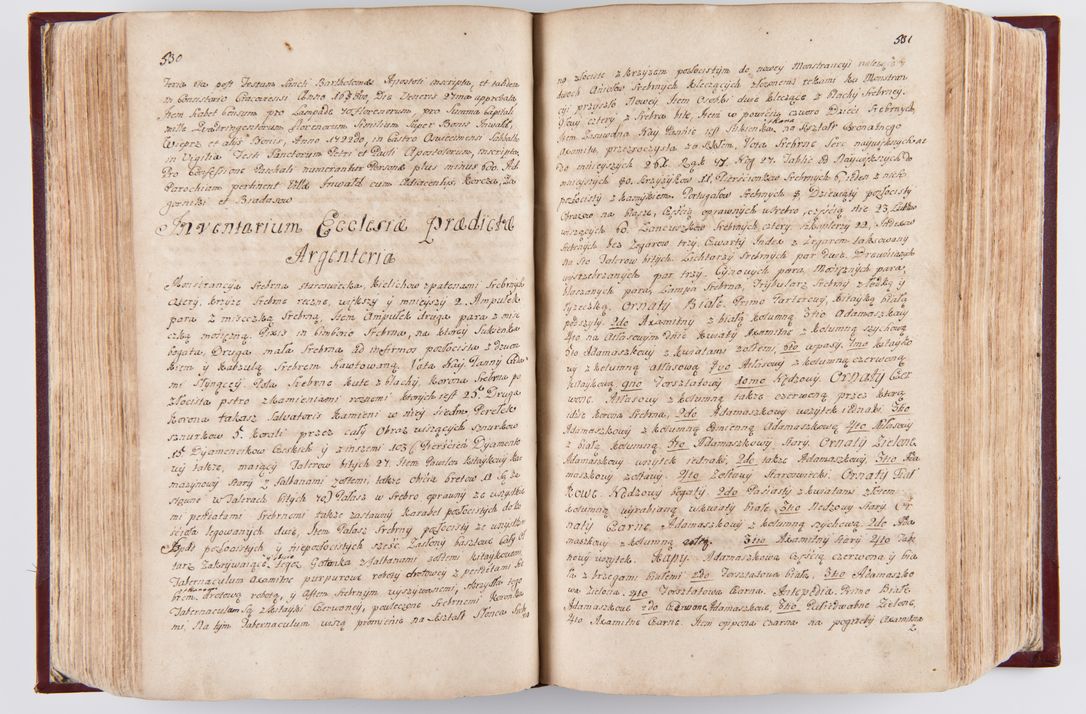 530
Feria 4ta post Festum Sancti Bartholomæi Apostoli inscripta, et tandem
in Consistorio Cracoviensi Anno Die Veneris 27ma approbata
Item habet Censum pro Lampade 70 Florenorum pro Summa Capitali
mille Quadringentorum florenorum Similium Super Bonis Inwałd,
Wieprz et alijs Bonis, Anno 1722do, in Castro Osviecimensi Sabbatho
in Vigilia Festi Sanctorum Petri et Pauli Apostolorum, inscripta
Pro Confessione Paschali numerantur Personæ plus minus 600. Ad
Parochiam pertinent Villa Inwałd cum Adiacentijs,
gornik et
Inventarium Ecclesiæ prædictæ
Argenteria
Monstrancya Srebrna staroswiecka, Kielichow z patenami Srebrnych
cztery, krzyże Srebrne reczne, większy y mnieyszy 2. Ampułek
para z miseczką Srebrną, Item Ampułek druga para z mise
czką mosięzną. Pixis in Srebrna, na ktorey Sukienka
bogata, Druga mała Srebrna, ad infirmos pozłocista z dzwon
kiem y Srebrem haftowaną. Vota Nay: Panny
mi Słynącey, Srebrne kute z blachy, Korona Srebrna po
złocista pstro z kamieniami roznemi ktorych iest 25. Druga
Korona takasz Salvatoris Kamieni w niey siedm, Perełek
sznurkow 5. Korali przez cały Obraz wiszących sznurkow
15 Dyamencikow Czeskich y z inszemi 103 Pierscień Dyamento
wy także, maiący Talerow bitych 27. Item Pawilon kitaykowy kar
mazynowy stary z Galkanami zołtemi, także
w Talerach bitych Pałasz w Srebro oprawny ze wszystkie
mi Srebrnemi także zastawny Karabel pozłocistych do Ko
ścioła legowanych dwie, Item Pałasz Srebrny pozłocisty ze wszystkim
pozłocistych y niepozłocistych sześć Zasłony basztowe cały oł
tarz Zakrywaiące z galkanami zołtemi kitaykowemi,
Tabernaculum axamitne purpurowe roboty drotowey z perełkami Sre
brem, drotową robotą, y Aftem Srebrnym wyszywanemi, tego
Tabernaculum są z kitayki Czerwoney, Srebrnemi
mi, Na tym Tabernaculum wiszą promienie na kształt Słonca Srebr
531
no złociste z krzyżem pozłocistym do nowey Monstrancyi
dwoch Aniołow Srebrnych klęczących złożonemi rekami ku Monstran
cyi przyszło Nowey, Item Osobki dwie klęczące z Blachy Srebrney.
cztery z Srebra bite, Item w powiciu czworo Dzieci Srebrnych
Item Nay Panną iest Sukienka na kształt Gronatnego
Axamitu, przezroczysta za szkłem, Vota Srebrne Serc naywiększych aż
do mnieyszych 261. Rąk 47 Nog 27. Tablic od Naywiększych do
mnieyszych 80. Krzyżykow 11. Pierscionkow Srebrnych 6 Jeden z nich
pozłocisty z kamykiem. Portugałow Srebrnych 8 Dziewiąty pozłocisty
Obrazow na Blasze, Częścią oprawnych w Srebro częścią nie 23.
wiszących 60. Łancuszkow Srebrnych cztery, 12,
Srebrnych bez Zegarow trzy, Czwarty Index z Zegarem taksowany
na Sto Talerow bitych. Lichtarzy Srebrnych par dwie, Drewnianych
wysrzebrzanych par trzy, Cynowych para, Mosięznych para,
blaszanych para, Lampa Srebrna, Trybularz Srebrny z łodką y
łyżeczką. Ornaty Białe. Primo Tarferowy, kitayką białą
podszyty. 2do Axamitny z białą kolumną 3tio Adamaszkowy
4to na Atłasowym dnie kwiaty Axamitne z kolumną szychową
5to Adamaszkowy z kwiatami zołtemi, 6to w pasy, 7mo kitayko
wy z kolumną atłasową 8vo Atłasowy z kolumną czerwoną
kitaykową 9no Torsztatowy 10mo Nędzowy. Ornaty Czer
wone. Atłasowy z kolumną także czerwoną, przez ktorą
idzie korona Srebrna, 2do Adamaszkowy wszytek iednaki, 3tio
Adamaszkowy z kolumną Adamaszkową 4to Atłasowy
z białą kolumną 5to Adamaszkowy stary. Ornaty Zielone.
Adamaszkowy wszytek iednaki, 2do także Adamaszkowy, 3tio Ada
maszkowy zołtawy. 4to Zołtawy staroswiecki. Ornaty Fioł
kowe. Nędzowy bogaty, 2do Pasiasty z kwiatami złotemi
kolumną wyrabianą w kwiaty białe 3tio Nędzowy stary. Or
naty Czarne. Adamaszkowy z kolumną szychową, 2do Ada
maszkowy z kolumną zołtą, 3tio Axamitny stary 4to Tak
nowy wszytek. Kapy. Adamaszkowa Częścią czerwona y bia
ła z brzegami białemi 2do Torsztatowa biała. 3tio Adamaszko
wa zielona. 4to Torsztatowa Czarna. Antepedia. Primo Białe
Adamaszkowe 2do Czerwone Adamaszkowe, 3tio Połiedwabne Zielone,
4to Axamitne Czarne. Item oppona czarna na pogrzeby Axamitna
2